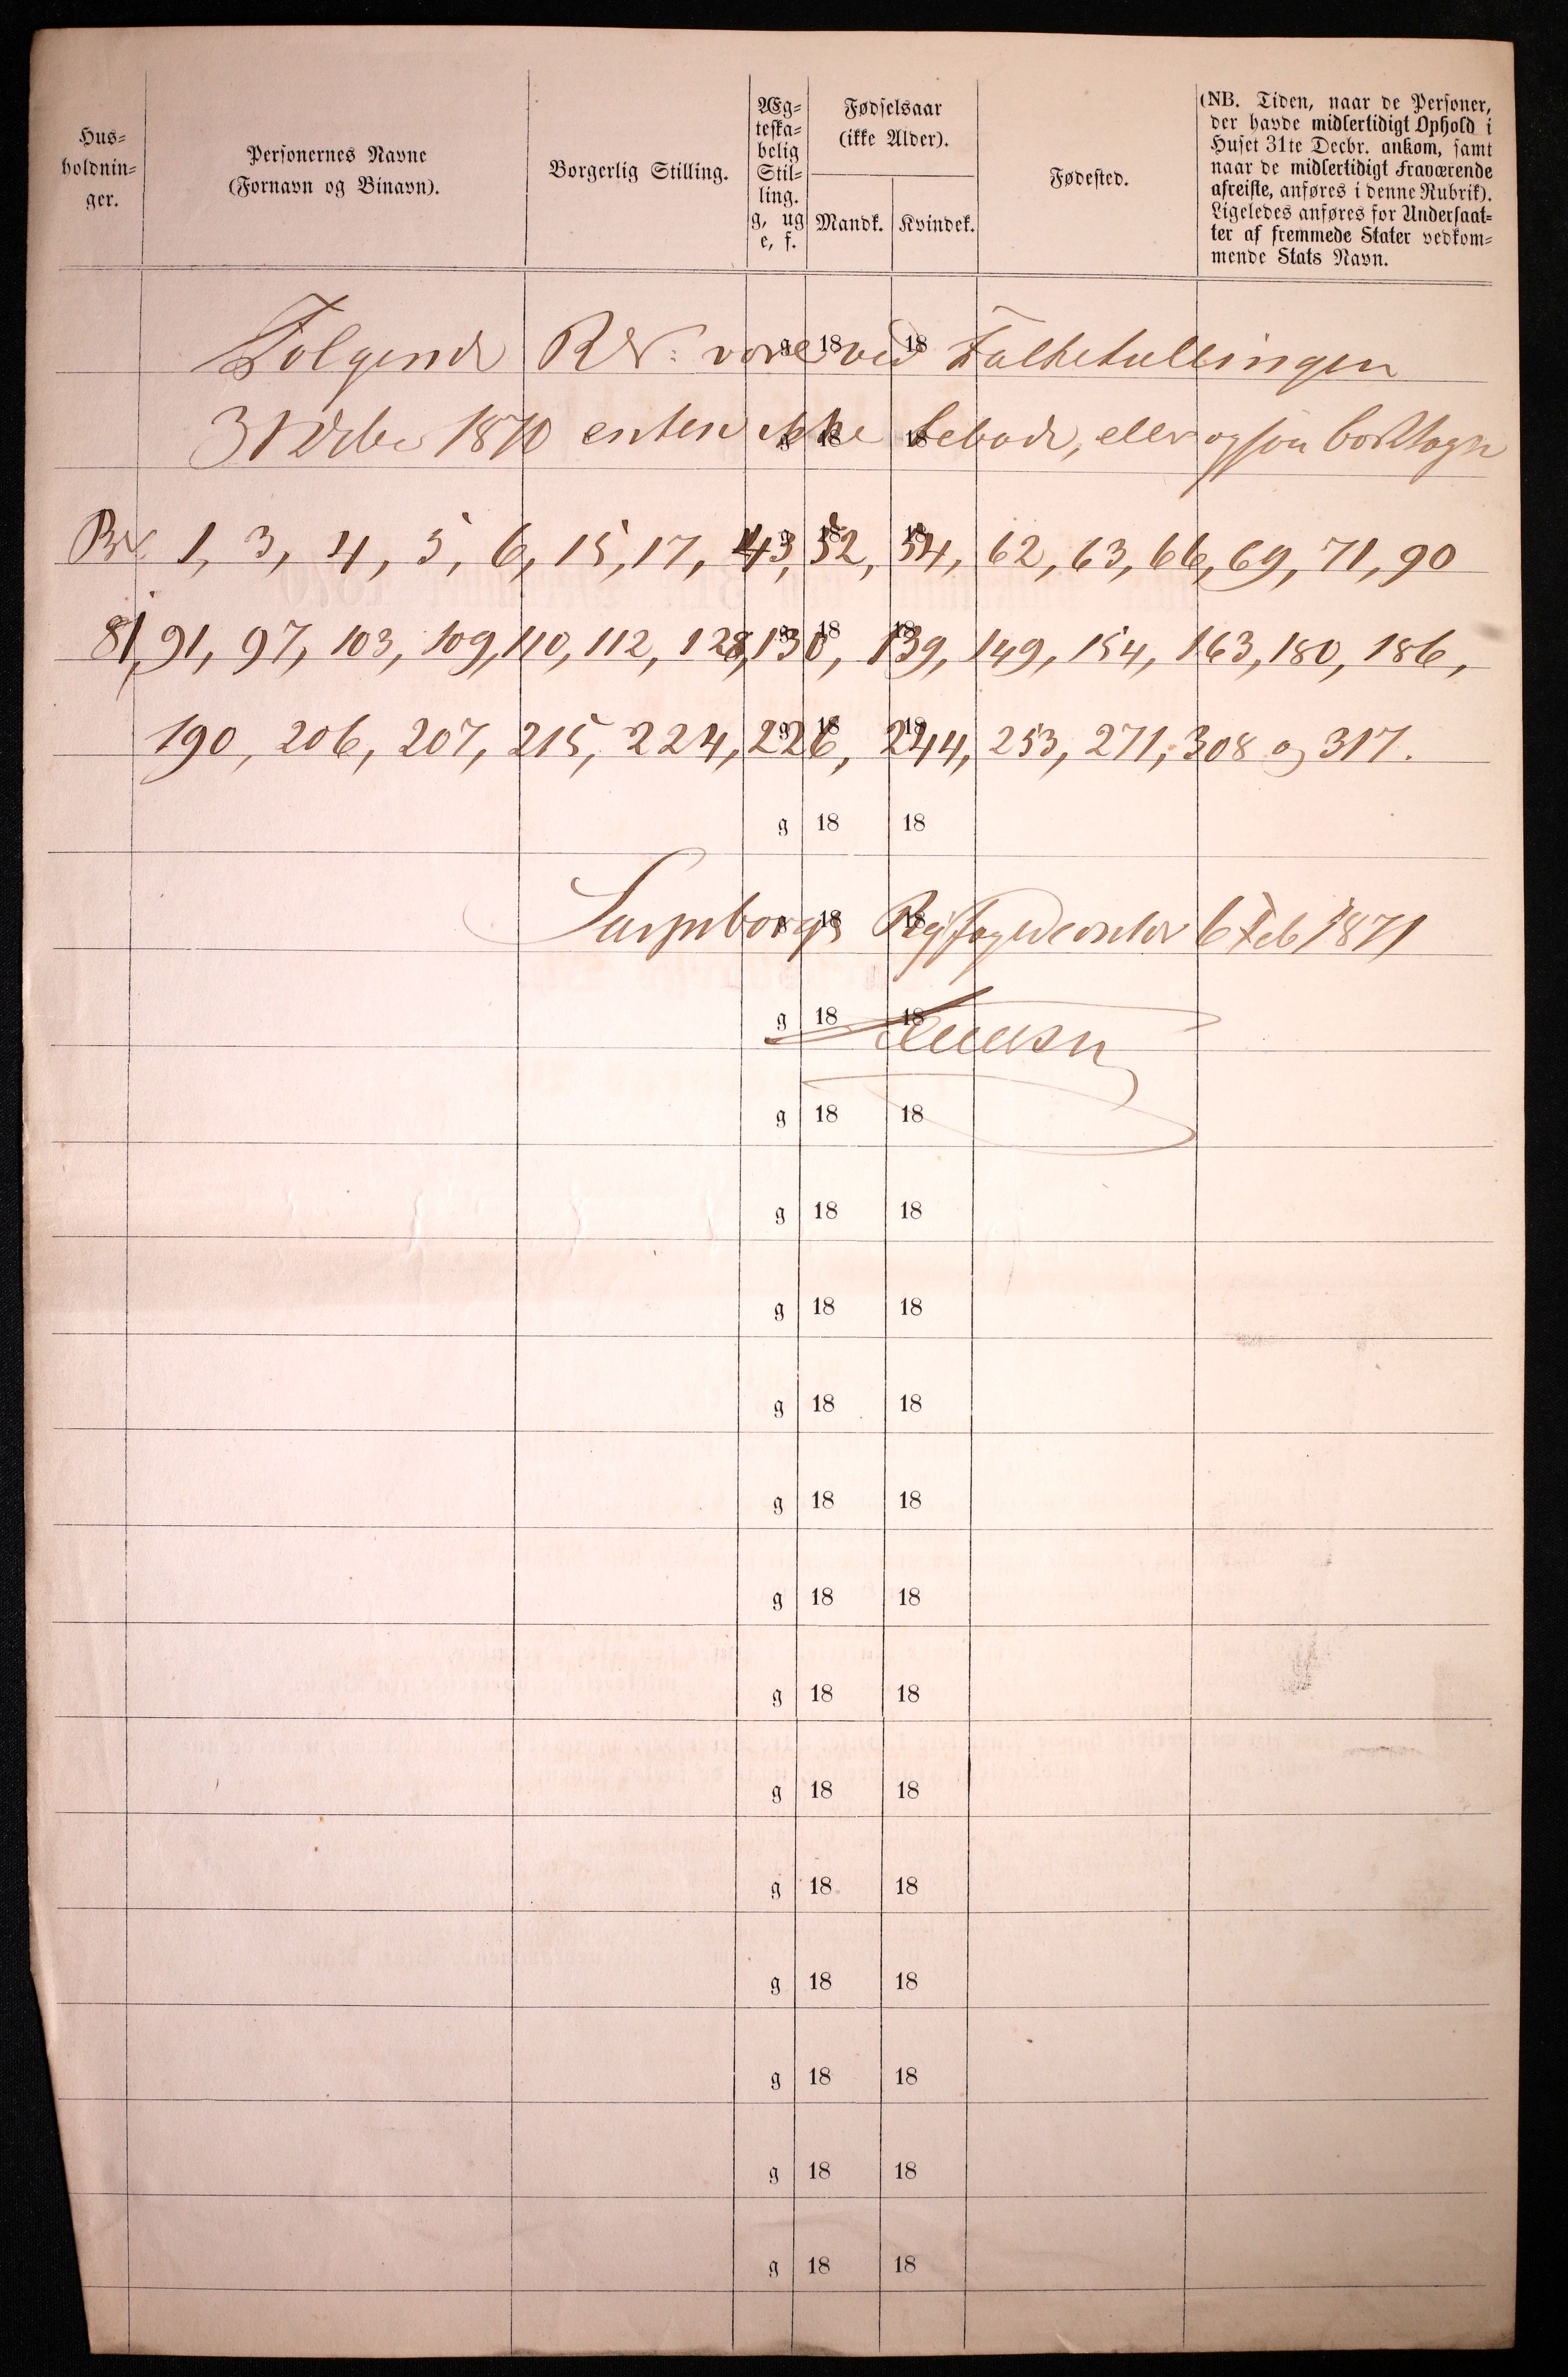 Hus-
holdnin-
ger.
Personernes Navne
(Fornavn og Binavn).
Borgerlig Stilling.
Æg-
teska-
belig
Stil-
ling.
g, ug
e, f.
Fødselsaar
(ikke Alder).
Mandk.
Kvindek.
Fødested.
(NB. Tiden, naar de Personer,
der havde midlertidigt Ophold i
Huset 31te Decbr. ankom, samt
naar de midlertidigt Fraværende
afreiste, anføres i denne Rubrik).
Ligeledes anføres for Undersaat-
ter af fremmede Stater vedkom-
mende Stats Navn.
Følgende vare ved Folketællingen
31 Decbr 1870 enten ikke beboede, eller ogsaa
1, 3, 4, 5, 6, 15, 17, 43, 52, 54, 62, 63, 66, 69, 71, 90
81, 91, 97, 103, 109, 110, 112, 128, 130, 139, 149, 154, 163, 180, 186,
190, 206, 207, 215, 224, 226, 244, 253, 271, 308 og 317.
g 18 18
Sarpsborgs 6 Feb 1871
g 18 18
g 18 18
g 18 18
g 18 18
g 18 18
g 18 18
g 18 18
g 18 18
g 18 18
g 18 18
g 18 18
g 18 18
g 18 18
g 18 18